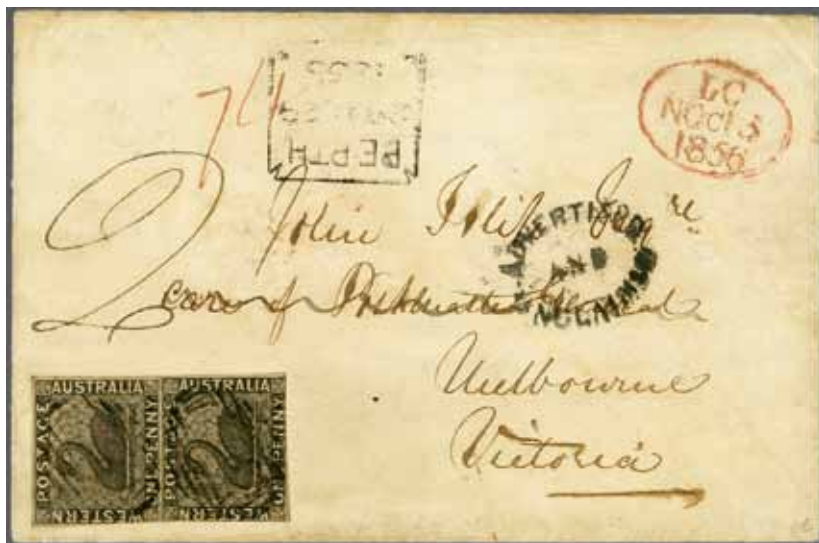 PERTH
1855
LC
NOC15
1856
2
John
ADVERTISED
AND
UNCLAIMED
care of Postmaster General
Melbourne
Victoria
AUSTRALIA
POSTAGE
ONE PENNY
WESTERN
AUSTRALIA
POSTAGE
ONE PENNY
WESTERN